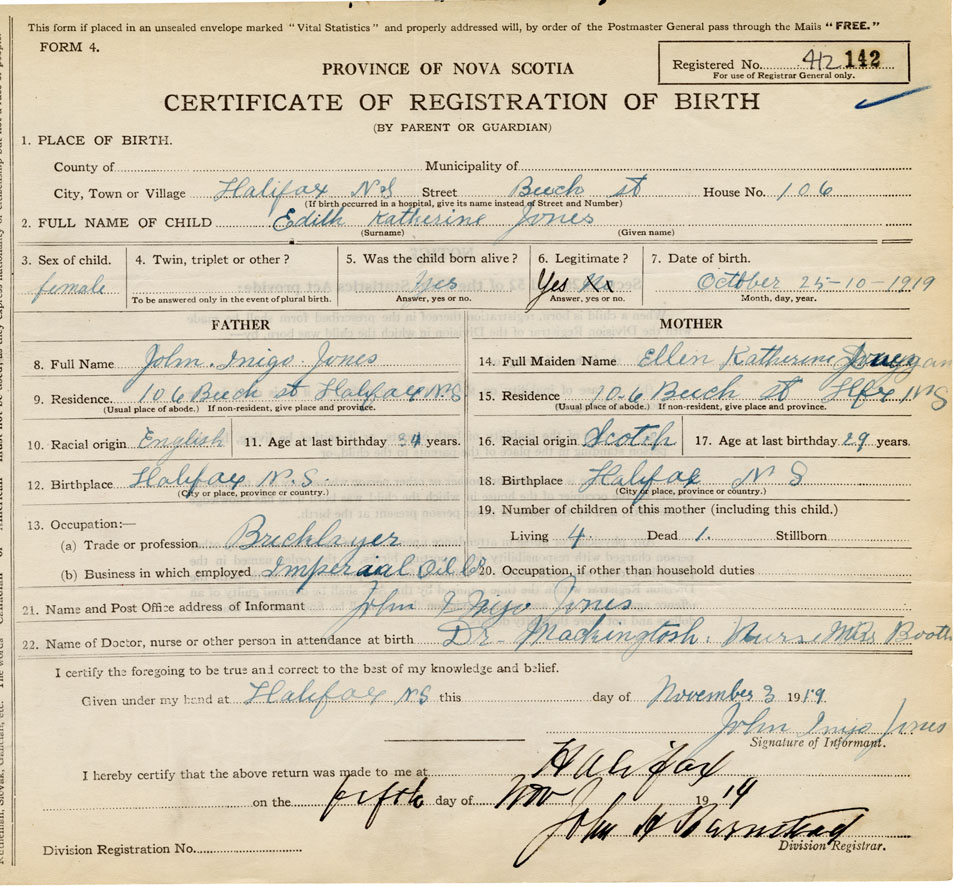 This form if placed in an unsealed envelope marked "Vital Statistics" and properly addressed will, by order of the Postmaster General pass through the Mails "FREE."
FORM 4.
Registered No. 412 142
For use of Registrar General only.
PROVINCE OF NOVA SCOTIA
CERTIFICATE OF REGISTRATION OF BIRTH
(BY PARENT OR GUARDIAN)
1. PLACE OF BIRTH.
County of Municipality of
City, Town or Village Halifax N.S Street Buch st House No. 106
(If birth occurred in a hospital, give its name instead of Street and Number)
2. FULL NAME OF CHILD Edith Katherine Jones
(Surname) (Given name)
3. Sex of child. 4. Twin, triplet or other? 5. Was the child born alive? 6. Legitimate? 7. Date of birth.
female Yes Yes No October 25-10-1919
To be answered only in the event of plural birth. Answer, yes or no. Answer, yes or no. Month, day, year.
FATHER MOTHER
8. Full Name John Inigo Jones 14. Full Maiden Name Ellen Katherine
9. Residence. 106 Buch st Halifax N.S 15. Residence 106 Buch st Hfx N.S
(Usual place of abode.) If non-resident, give place and province. (Usual place of abode.) If non-resident, give place and province.
10. Racial origin English 11. Age at last birthday 34 years. 16. Racial origin Scotch 17. Age at last birthday 29 years.
12. Birthplace Halifax N.S. 18. Birthplace Halifax N S
(City or place, province or country.) (City or place, province or country.)
13. Occupation:— 19. Number of children of this mother (including this child.)
(a) Trade or profession Bricklayer Living 4 Dead 1. Stillborn
(b) Business in which employed Imperial Oil 20. Occupation, if other than household duties
21. Name and Post Office address of Informant John Inigo Jones
22. Name of Doctor, nurse or other person in attendance at birth Dr. Mackingtosh. Nurse Mrs Booth
I certify the foregoing to be true and correct to the best of my knowledge and belief.
Given under my hand at Halifax N.S this day of November 3 1919.
John Inigo Jones
Signature of Informant.
I hereby certify that the above return was made to me at Halifax
on the fifth day of Nov 1919
John H Barnstead
Division Registrar.
Division Registration No.